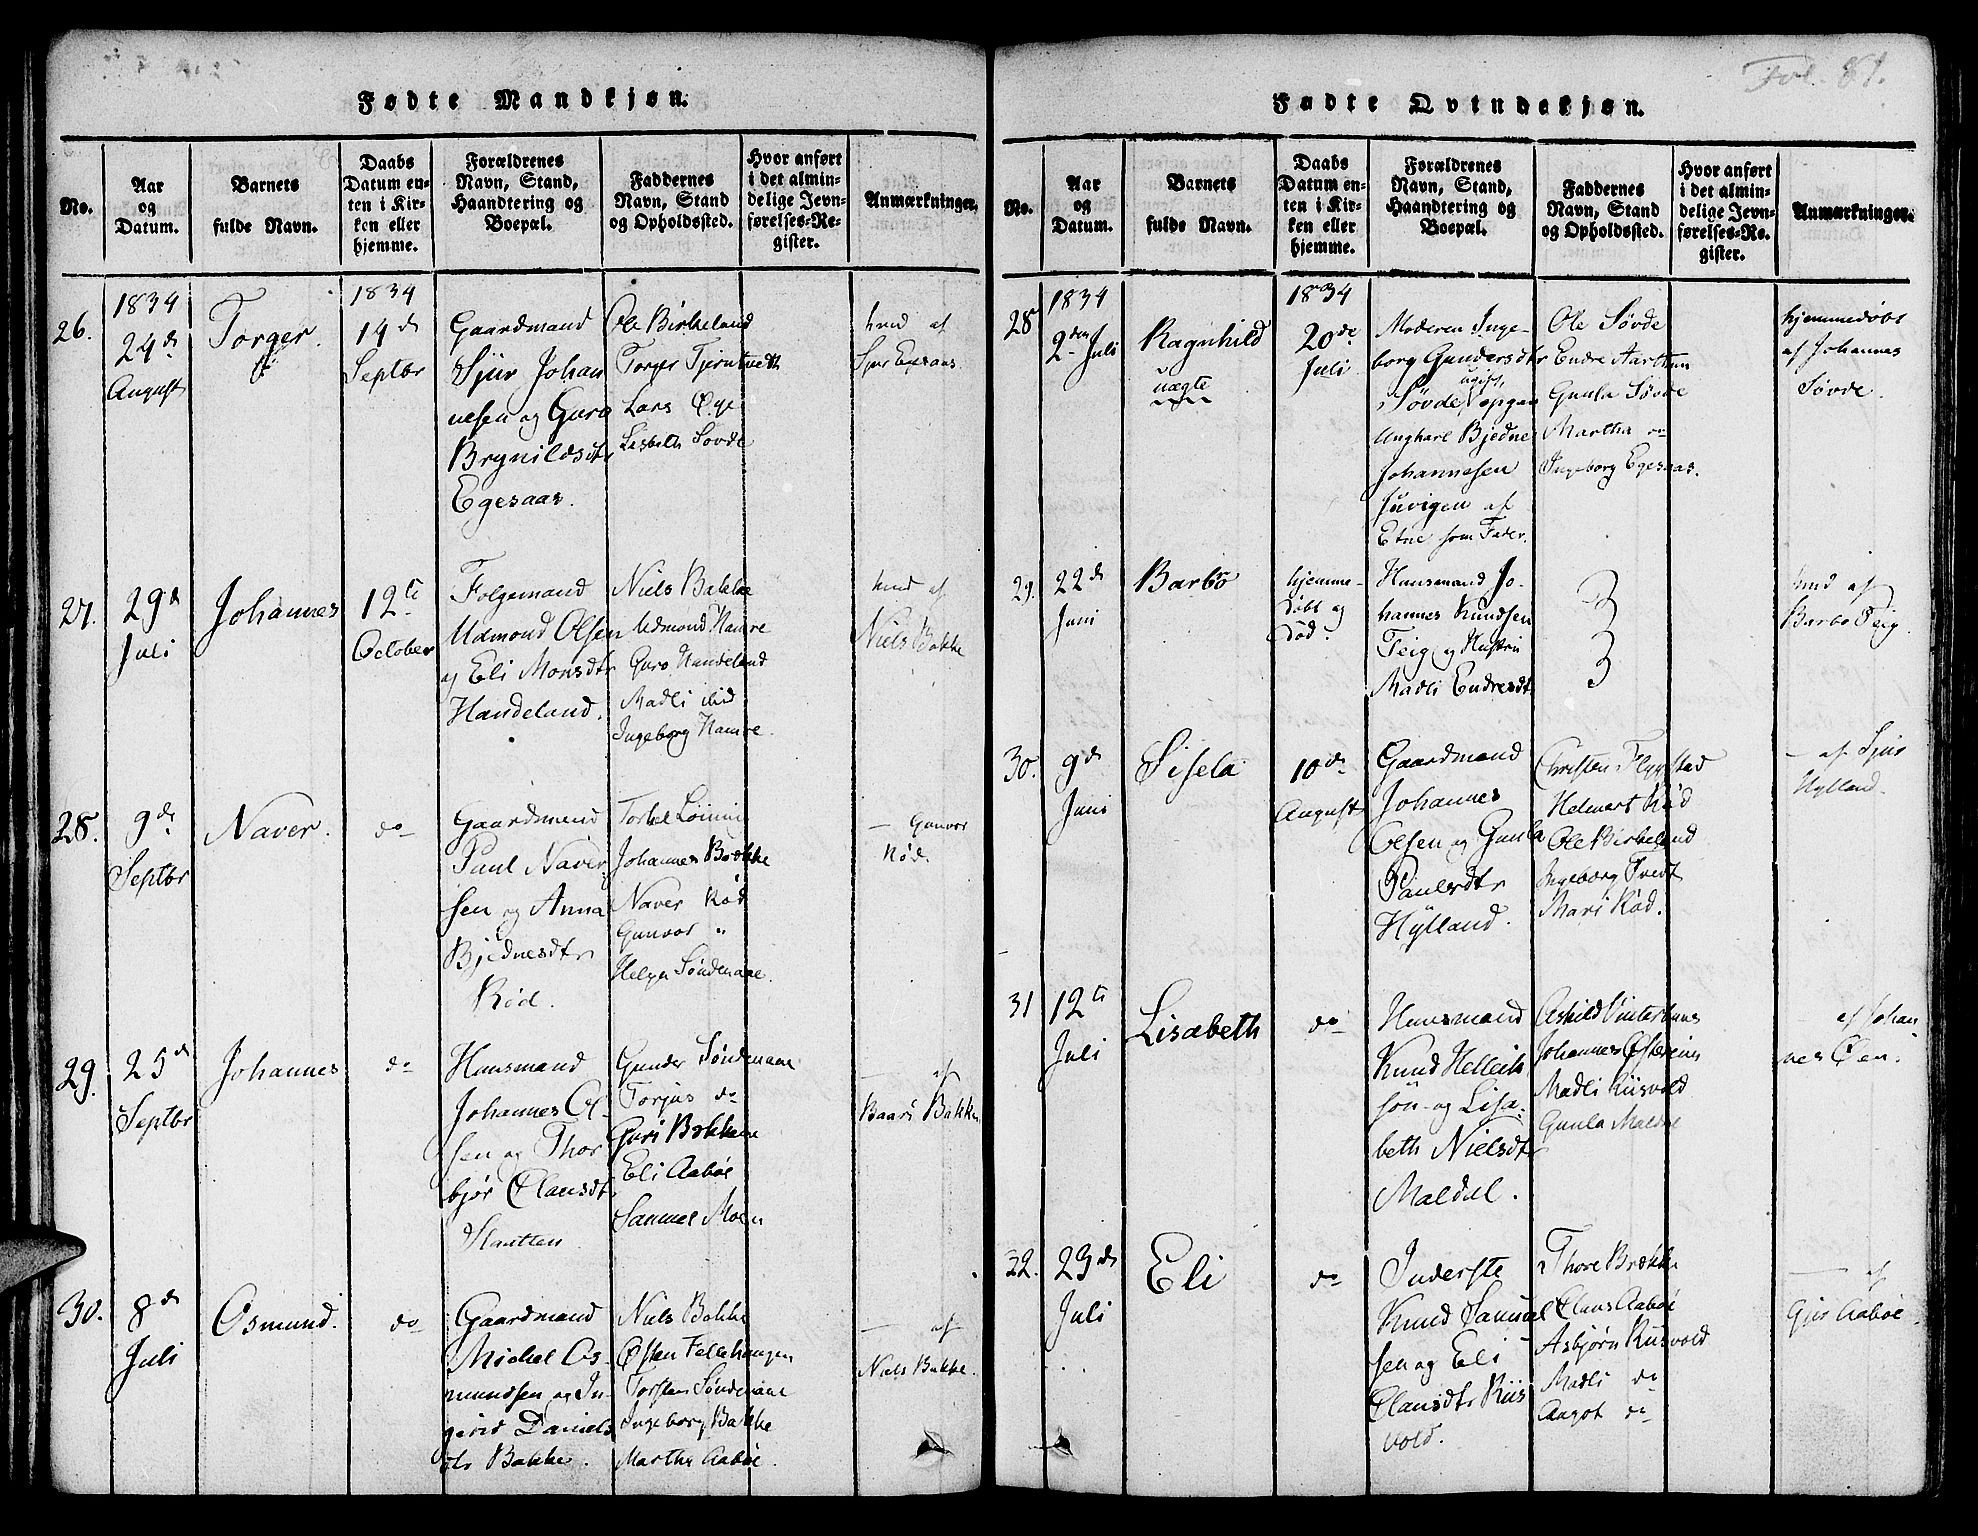 Fol. 81.
Fødte Mandkjøn.
No.
Aar
og
Datum.
Barnets
fulde Navn.
Daabs
Datum en-
ten i Kir-
ken eller
hjemme.
Forældrenes
Navn, Stand,
Haandtering og
Boepæl.
Faddernes
Navn, Stand
og Opholdssted.
Hvor anført
i det almin-
delige Jevn-
førelses-Re-
gister.
Anmærkninger.
26.
1834
24de
August
Torger.
1834
14de
Septbr
Gaardmand
Sjur Johan
nesen og Guro
Brynildsdtr
Egesaas.
Ole Birkeland
Torger Tjentvedt
Lars Øye
Lisbeth Sövde
hmd af
Sjur Egesaas
27.
29de
Juli
Johannes
12te
October
Folgemand
Udmond Olsen
og Eli Monsdtr
Handeland.
Niels Bakke
Udmond Hamre
Guro Handeland
Madli ibid
Ingeborg Hamre.
hmd af
Niels Bakke
28.
9de
Septbr
Naver.
do
Gaardmand
Paul Naver
sen og Anna
Bjednesdtr
Rød.
Torkel
Johannes Bakke
Naver Rød
Gunvor "
Helga Søndenaae.
— Gunvor
Rød.
29.
25de
Septbr
Johannes
do
Huusmand
Johannes Ol-
sen og Thor
bjør Clausdt.
Slaatten
Gunder Søndenaae
Torjus do
Guri Bakken
Eli Aabøe
Samuel Moen
— af
Baari Bakke
30.
8de
Juli
Osmund.
do
Gaardmand
Michel Os-
mundsen og In-
gerid Daniels
dtr Bakke.
Niels Bakke
Østen Fellehaugen
Torsten Søndenaae
Ingeborg Bakke
Martha Aabøe.
— af
Niels Bakke.
Fødte Qvindekjøn.
No.
Aar
og
Datum.
Barnets
fulde Navn.
Daabs
Datum en-
ten i Kir-
ken eller
hjemme.
Forældrenes
Navn, Stand,
Haandtering og
Boepæl.
Faddernes
Navn, Stand
og Opholdssted.
Hvor anført
i det almin-
delige Jevn-
førelses-Re-
gister.
Anmærkninger.
28
1834
2den Juli
Ragnhild
uægte
1834
20de
Juli
Moderen Inge-
borg Gundersdtr
ugift,
Søvde, opgav
Ungkarl Bjedne
Johannesen
af
Etne som Fader.
Ole Søvde
Endre Aarthun
Gunla Søvde
Martha do
Ingeborg Egesaas.
hjemmedøbt
af Johannes
Søvde.
29.
22de
Juni
Barbro
hjemme-
døbt og
død.
Huusmand Jo-
hannes Knudsen
Teig og Hustru
Madli Endresdt.
hmd af
Barbro Teig.
30.
9de
Juni
Sisela
10de
August
Gaardmand
Johannes
Olsen og Gunla
Paulsdtr
Hylland.
Christen Flygstad
Helmert Rød
Ole Birkeland
Ingeborg Tvedt
Mari Rød.
— af Sjur
Hylland.
31
12te
Juli
Lisabeth
do
Huusmand
Knud Hellich
søn og Lisa-
beth Nielsdtr
Maldal.
Askild Vinterhuus
Johannes Østreim
Madli Riisvold
Gunla Maldal
— af Johan
nes Øen.
32.
23de
Juli
Eli
do
Inderste
Knud Samuel
sen og Eli
Clausdtr Riis
vold.
Thore Bakke
Claus Aabøe
Asbjørn Riisvold
Madli do
Aagot do
— af
Guri Aabøe.